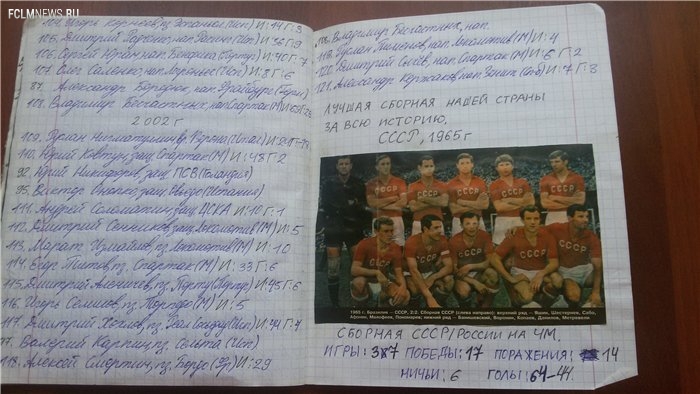 FCLMNEWS.RU
104. Игорь Корнеев, пз. Эспаньол (Исп) И: 14 Г: 3
105. Дмитрий Радченко, нап. Расинг (Исп) И: 35 Г: 9
106. Сергей Юран, нап. Бенфика (Порту)
107. Олег Саленко, нап. Логроньес (Исп) И: 8 Г: 6
87. Александр Бородюк, нап. Фрайбург (Герм)
108. Владимир Бесчастных, нап. Спартак (М)
2002 г
109. Руслан Нигматуллин, вр. Верона (Итал)
110. Юрий Ковтун, защ. Спартак (М) И: 48 Г: 2
92. Юрий Никифоров, защ. ПСВ (Голландия)
95. Виктор Онопко, защ. Овьедо (Испания)
111. Андрей Соломатин, защ. ЦСКА И: 10 Г: 1
112. Дмитрий Сенников, защ. Локомотив (М) И: 5
113. Марат Измайлов, пз. Локомотив (М) И: 10
114. Егор Титов, пз. Спартак (М) И: 33 Г: 6
115. Дмитрий Аленичев, пз. Порту (Португ) И: 45 Г: 6
116. Игорь Семшов, пз. Торпедо (М) И: 5
117. Дмитрий Хохлов, пз. Реал Сосьедад (Исп) И: 44 Г: 4
97. Валерий Карпин, пз. Сельта (Исп)
118. Алексей Смертин, пз. Бордо (Фр) И: 29
108. Владимир Бесчастных, нап.
119. Руслан Пименов, нап. Локомотив (М) И: 4
120. Дмитрий Сычёв, нап. Спартак (М) И: 6 Г: 2
121. Александр Кержаков, нап. Зенит (Спб) И: 7 Г: 3
ЛУЧШАЯ СБОРНАЯ НАШЕЙ СТРАНЫ
ЗА ВСЮ ИСТОРИЮ.
СССР, 1965 г
СССР СССР СССР СССР СССР
СССР СССР СССР СССР СССР
1965 г. Бразилия — СССР, 2:2. Сборная СССР (слева направо): верхний ряд — Банников, Шестернев, Сабо,
Афонин, Малофеев, Пономарев; нижний ряд — Банишевский, Воронин, Копаев, Данилов, Метревели
СБОРНАЯ СССР/РОССИИ НА ЧМ.
ИГРЫ: 37 ПОБЕДЫ: 17 ПОРАЖЕНИЯ: 14
НИЧЬИ: 6 ГОЛЫ: 64-44.